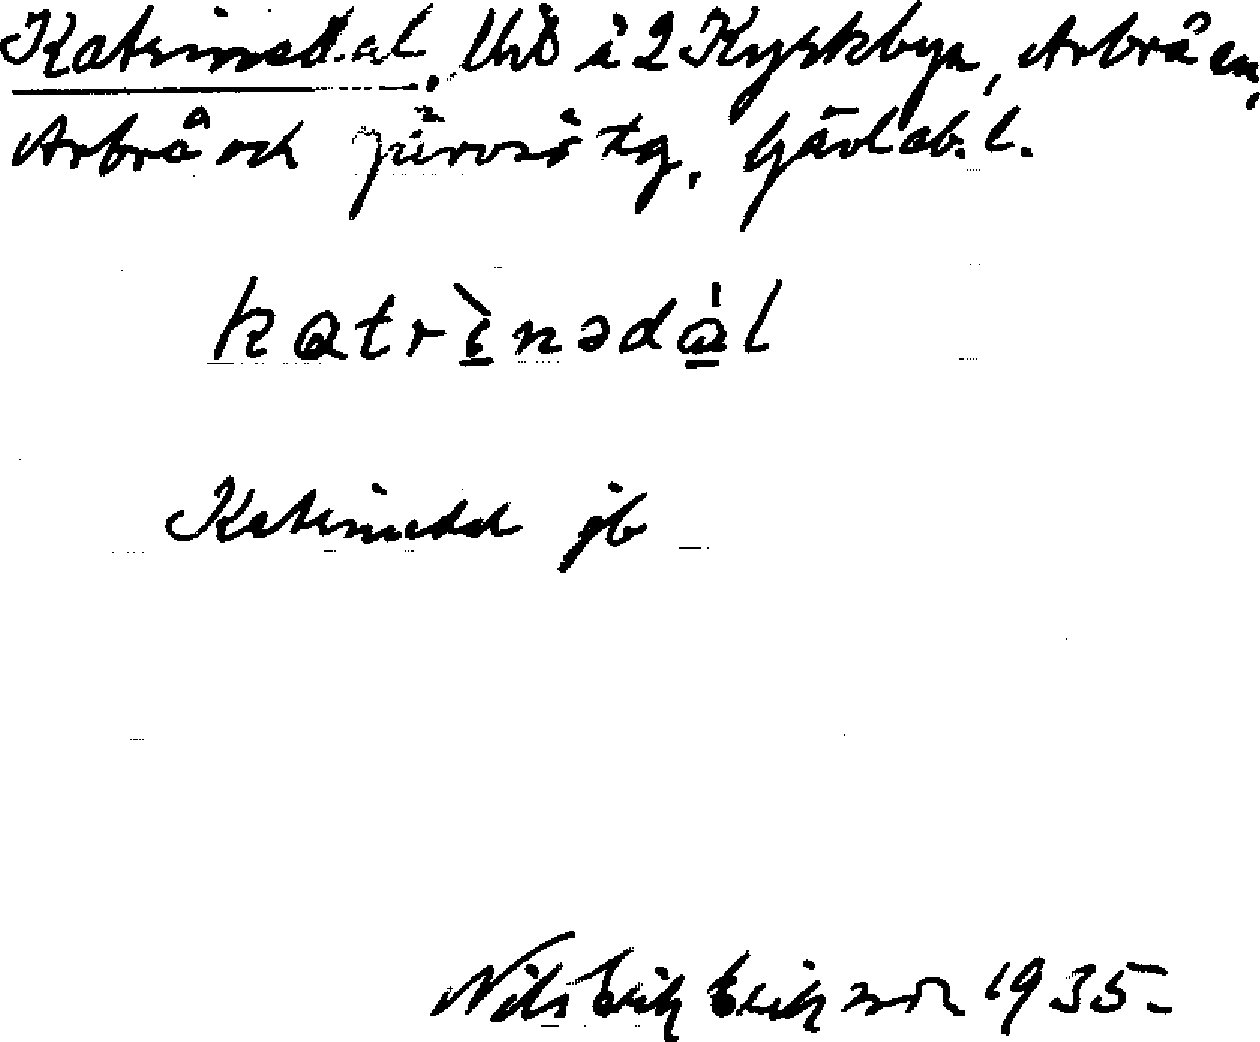 Katrinedal, Uhd å 2 Kyrkbyn, Arbrå sn,
Arbrå och Järvsö tg, Gävleb. l.
katrìnədál
Katrinedal jb
Nils Erik Eriksson 1935.